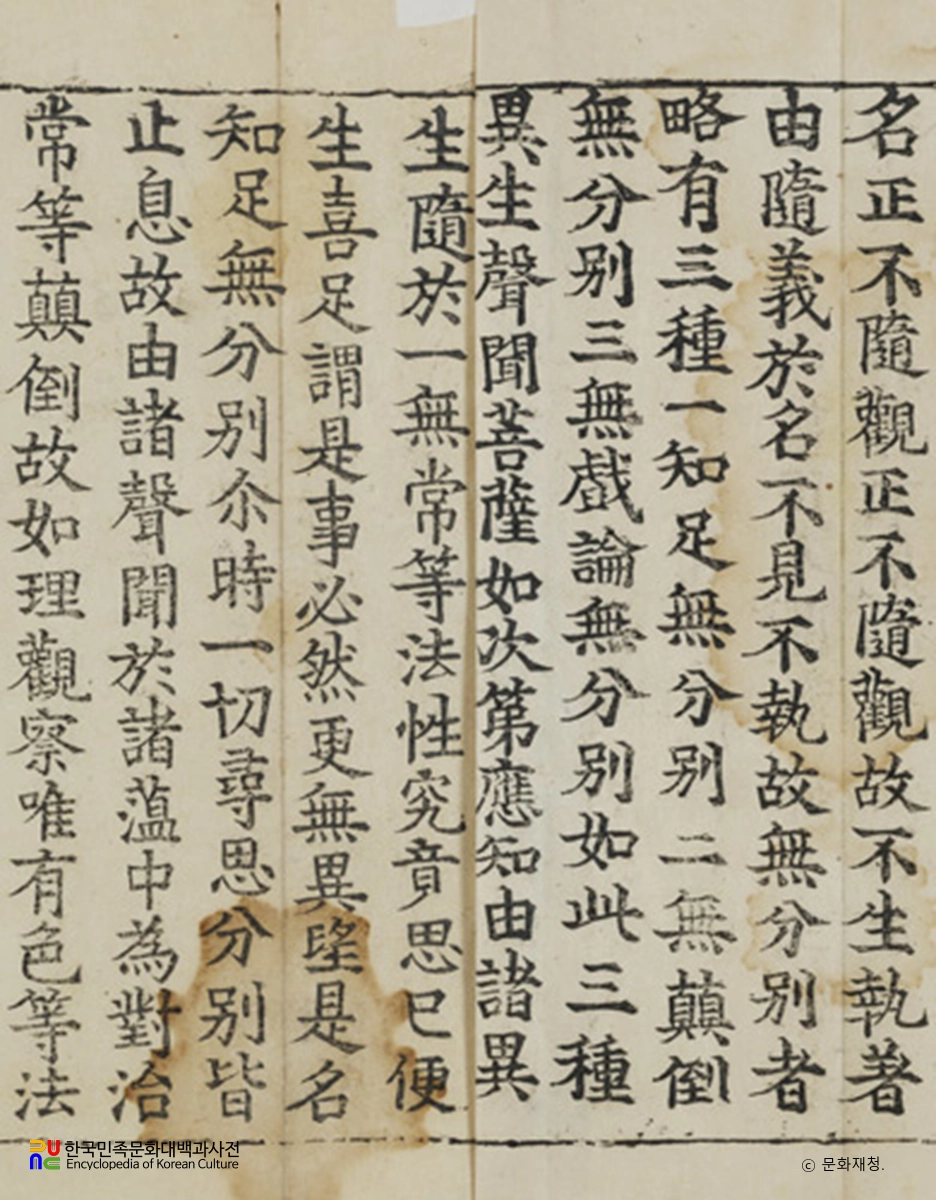 名正不隨觀正不隨觀故不生執著
由隨義於名不見不執故無分別者
略有三種一知足無分別二無顛倒
無分別三無戲論無分別如此三種
異生聲聞菩薩如次第應知由諸異
生隨於一無常等法性究竟思已便
生喜足謂是事必然更無異望是名
知足無分別尒時一切尋思分別皆
止息故由諸聲聞於諸薀中為對治
常等顛倒故如理觀察唯有色等法
한국민족문화대백과사전
Encyclopedia of Korean Culture
ⓒ 문화재청.